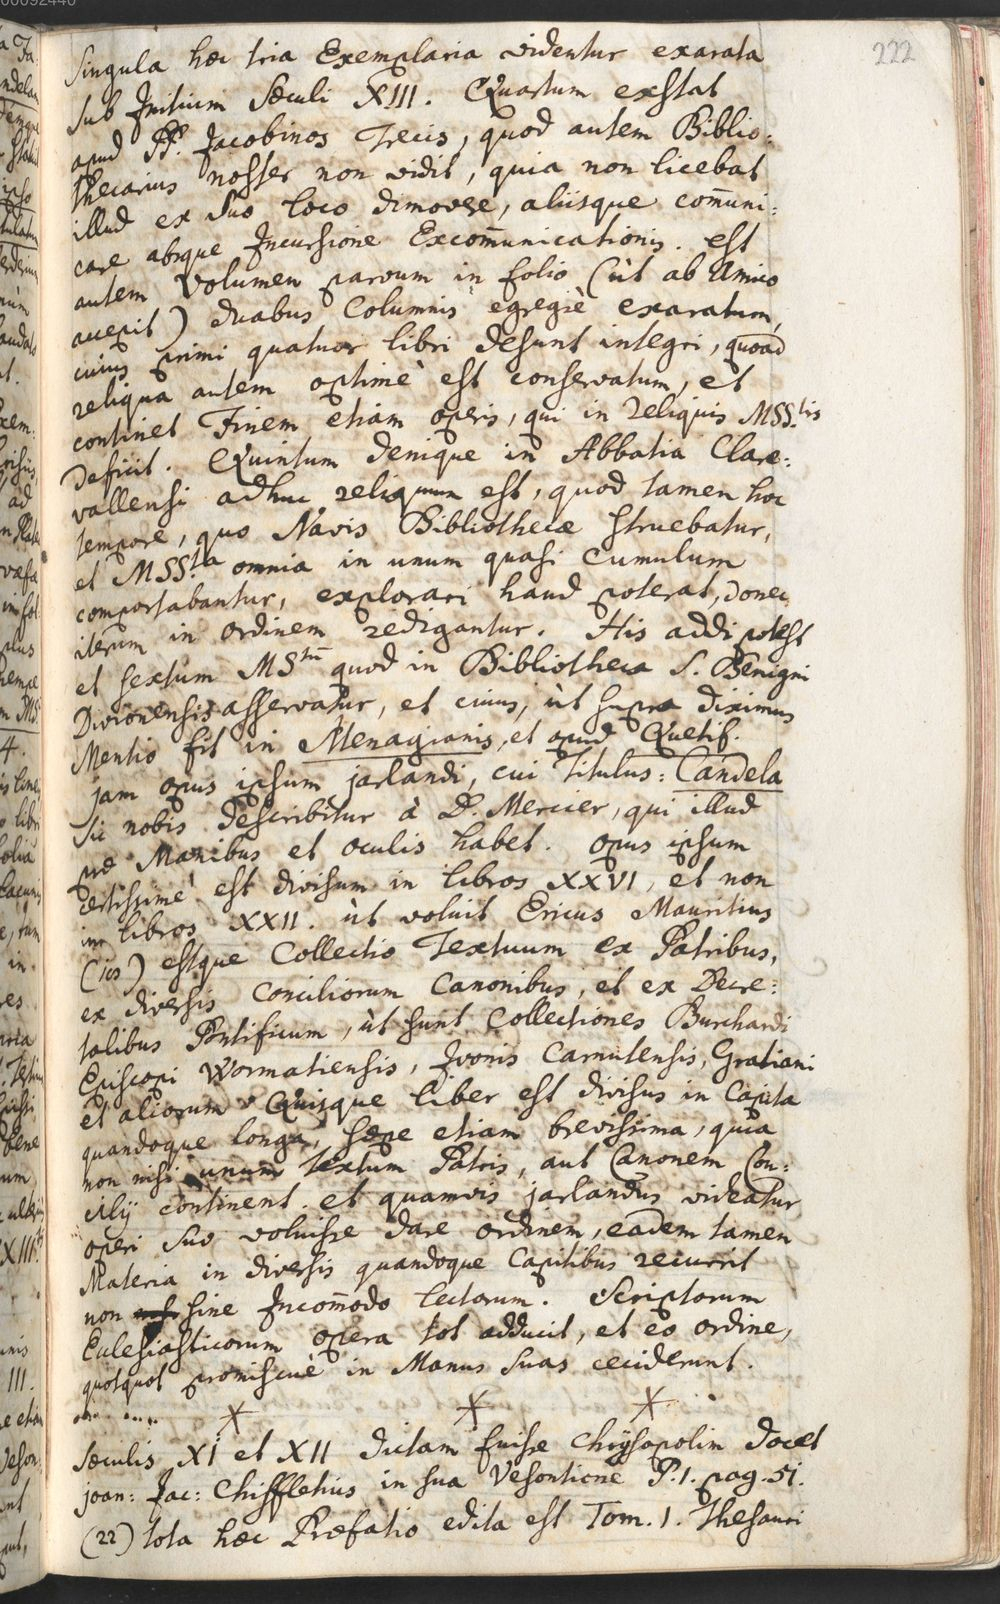 222
Singula hæc tria Exemplaria videntur exarata
sub Initium Sæculi XIII. Quartum exstat
apud PP. Jacobinos Trecis, quod autem Biblio:
thecarius noster non vidit, quia non licebat
illud ex suo loco dimovere, aliisque com̄uni:
care absque Incursione Excom̄unicationis. est
autem Volumen parvum in folio (ùt ab Amico
accepit) duabus Columnis egregiè exaratum,
cuius primi quatuor libri desunt integri, quoad
reliqua autem optimè est conservatum, et
continet Finem etiam operis, qui in reliquis MSS.tis
deficit. Quintum denique in Abbatia Clare:
vallensi adhuc reliquum est, quod tamen hoc
tempore, quo Navis Bibliothecæ struebatur,
et MSS.ta omnia in unum quasi Cumulum
comportabantur, explorari haud poterat, donec
iterum in ordinem redigantur. His addi potest
et sextum MStū quod in Bibliotheca S. Benigni
Divionensis asservatur, et cuius, ùt supra diximus
Mentio fit in Menagianis, et apud Quetif.
jam opus ipsum jarlandi, cui titulus: Candela
sic nobis describitur à D. Mercier, qui illud
præ Manibus et oculis habet. opus ipsum
certissimè est divisum in libros XXVI, et non
in libros XXII. ùt voluit Ericus Mauritius
(ics) estque Collectio Textuum ex Patribus,
ex diversis Conciliorum Canonibus, et ex Decre:
talibus Pontificum, ùt sunt Collectiones Burchardi
Episcopi Wormatiensis, Ivonis Carnutensis, Gratiani
et aliorum. Quisque liber est divisus in Capita
quandoque longa, sæpe etiam brevissima, quia
non nisi unum textum Patris, aut Canonem Con:
cilij continent. et quamvis jarlandus videatur
operi suo voluisse dare ordinem, eadem tamen
Materia in diversis quandoque Capitibus recurrit
non sine Incom̄odo lectorum. Scriptorum
Eclesiasticorum opera tot adducit, et eo ordine,
quotquot promiscuè in Manus suas ceciderunt.
* * *
sæculis XI et XII dictam fuisse Chrÿsopolin docet
joan: Jac: Chiffletius in sua Vesontione P.1. pag. 51.
(22) tota hæc Præfatio edita est Tom. 1. Thesauri